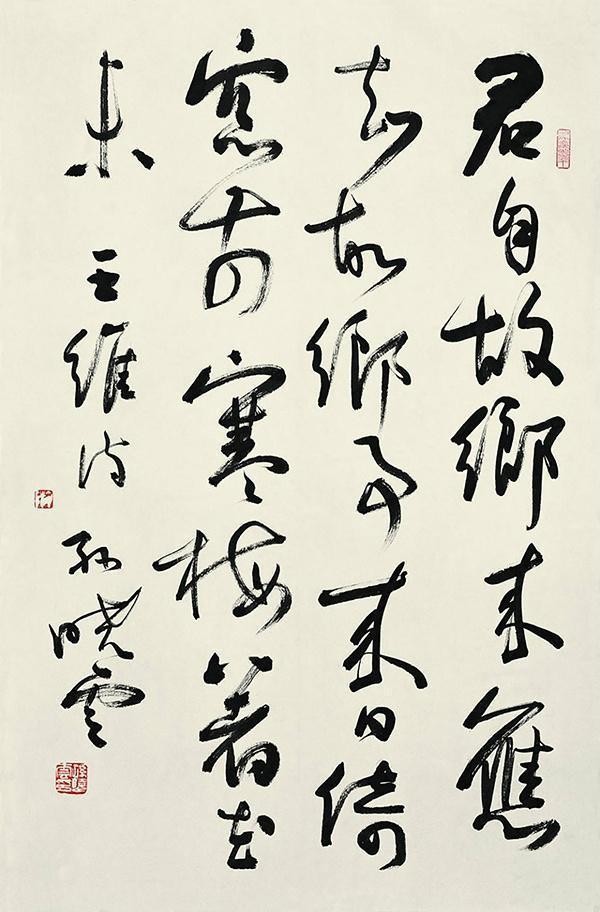 君自故鄉來應
知故鄉事來日倚
窓前寒梅著花
未 王維詩 孫曉雲